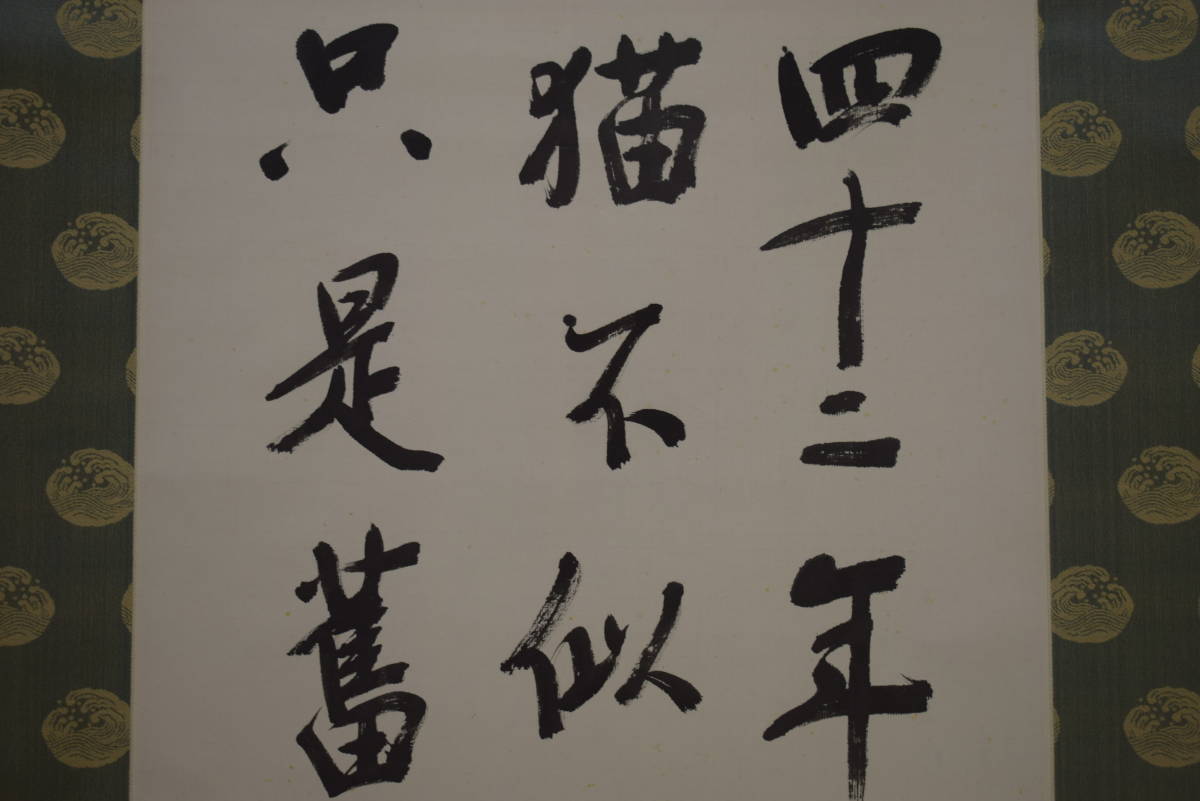 四十二年
猫不似
只是舊